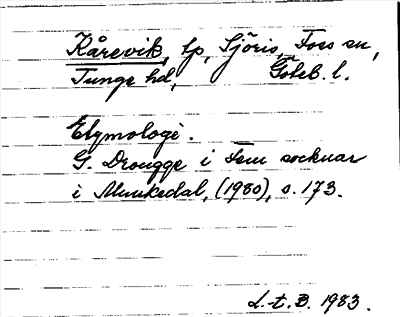 Kårevik, tp, Sjöris, Foss sn,
Tunge hd, Göteb. l.
Etymologi.
G. Drougge i Fem socknar
i Munkedal, (1980), s. 173.
L.t.B. 1983.